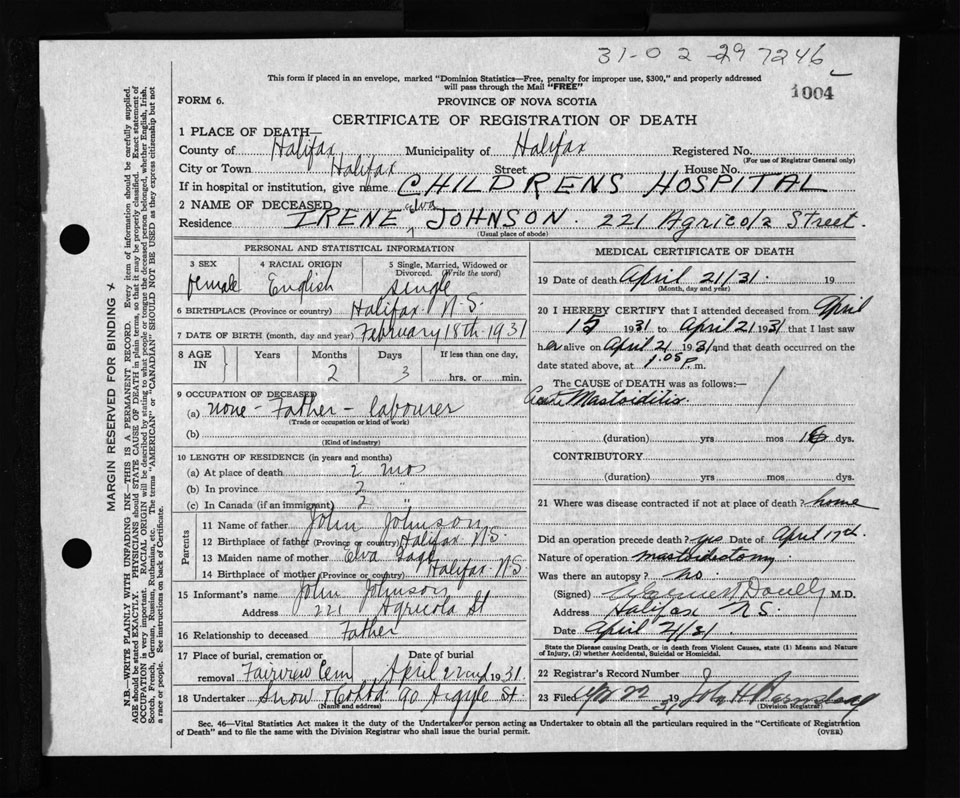 31-02-297246
This form if placed in an envelope, marked "Dominion Statistics—Free, penalty for improper use, $300," and properly addressed
will pass through the Mail "FREE"
1004
FORM 6.
PROVINCE OF NOVA SCOTIA
CERTIFICATE OF REGISTRATION OF DEATH
1 PLACE OF DEATH—
County of Halifax Municipality of Halifax Registered No.
(For use of Registrar General only)
City or Town Halifax Street House No.
If in hospital or institution, give name CHILDRENS HOSPITAL
2 NAME OF DECEASED IRENE Elva JOHNSON.
Residence 221 Agricola Street.
(Usual place of abode)
PERSONAL AND STATISTICAL INFORMATION
3 SEX 4 RACIAL ORIGIN 5 Single, Married, Widowed or
Divorced. (Write the word)
female English single
6 BIRTHPLACE (Province or country) Halifax N.S.
7 DATE OF BIRTH (month, day and year) February 18th-1931
8 AGE IN Years Months Days If less than one day,
2 3 hrs. or min.
9 OCCUPATION OF DECEASED
(a) none - Father - labourer
(Trade or occupation or kind of work)
(b)
(Kind of industry)
10 LENGTH OF RESIDENCE (in years and months)
(a) At place of death 2 mos
(b) In province 2 "
(c) In Canada (if an immigrant) 2 "
Parents
11 Name of father John Johnson
12 Birthplace of father (Province or country) Halifax N.S.
13 Maiden name of mother Elva
14 Birthplace of mother (Province or country) Halifax N.S
15 Informant's name John Johnson
Address 221 Agricola St
16 Relationship to deceased Father
17 Place of burial, cremation or Date of burial
removal Fairview Cem April 22nd 1931
18 Undertaker Snow & Co Ltd 90 Argyle St.
(Name and address)
MEDICAL CERTIFICATE OF DEATH
19 Date of death April 21/31. 19
(Month, day and year)
20 I HEREBY CERTIFY that I attended deceased from April
15 1931 to April 21 1931 that I last saw
her alive on April 21 1931 and that death occurred on the
date stated above, at 1.05 P. m.
The CAUSE OF DEATH was as follows:
Acute Mastoiditis.
(duration) yrs mos dys.
CONTRIBUTORY
(duration) yrs mos dys.
21 Where was disease contracted if not at place of death? home
Did an operation precede death? yes Date of April 17th.
Nature of operation mastoidectomy
Was there an autopsy? No
(Signed) M.D.
Address Halifax N.S.
Date April 21/31
State the Disease causing Death, or in death from Violent Causes, state (1) Means and
Nature of Injury, (2) whether Accidental, Suicidal or Homicidal.
22 Registrar's Record Number
23 Filed Apr 22 1931 John H
(Division Registrar)
Sec. 46—Vital Statistics Act makes it the duty of the Undertaker or person acting as Undertaker to obtain all the particulars required in the "Certificate of Registration
of Death" and to file the same with the Division Registrar who shall issue the burial permit.
(OVER)
MARGIN RESERVED FOR BINDING
N.B.—WRITE PLAINLY WITH UNFADING INK—THIS IS A PERMANENT RECORD. Every item of information should be carefully supplied.
AGE should be stated EXACTLY. PHYSICIANS should STATE CAUSE OF DEATH in plain terms, so that it may be properly classified. Exact statement of
OCCUPATION is very important. RACIAL ORIGIN will be described by stating to what people or tongue the deceased person belonged, whether English, Irish,
Scotch, French, German, Russian, Ruthenian, etc. The terms "AMERICAN" or "CANADIAN" SHOULD NOT BE USED as they express citizenship but not
a race or people. See instructions on back of Certificate.